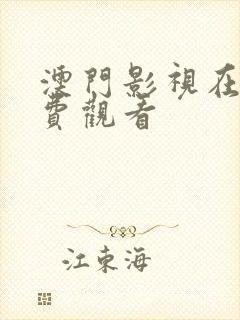 澳門影視在
費觀看
江東海